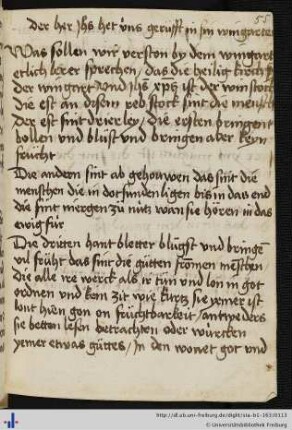 55
der her Jhs het uns gerüfft in sin wingarten
Was sollen wir verston by dem wingart
etlich lerer sprechen / das die heilig kirch sy
der wingart Und Jhs xps ist der winstock
die est an disem reb stock sint die mensch
Der est sint drierley / die ersten bringent
bollen und blüst und bringen aber keyn
frücht
Die andern sint ab gehowen das sint die
menschen die in dotsünden ligen bis in das end
die sint niergen zu nutz wan sie hören in das
ewig für
Die dritten hant bletter blügst und bringē
vil frücht das sint die gütten fromen menschen
die alle ire werck als ir tün und lon in got
ordnen und kein zit wie kurtz sie yemer ist
lont hien gon on früchtbarkeit / antweders
sie betten lesen betrachton oder würcken
yemer ettwas güttes / In den wonet got und
http://dl.ub.uni-freiburg.de/diglit/
© Universitätsbibliothek Freiburg